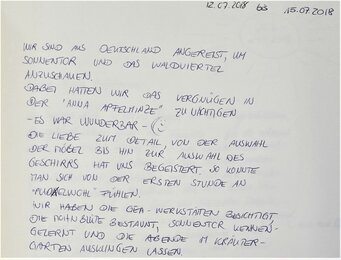 12.07.2018 bis 15.07.2018
WIR SIND AUS DEUTSCHLAND ANGEREIST, UM
SONNENTOR UND DAS WALDVIERTEL
ANZUSCHAUEN.
DABEI HATTEN WIR DAS VERGNÜGEN IN
DER "ANNA APFELMINZE" ZU NÄCHTIGEN
- ES WAR WUNDERBAR -
DIE LIEBE ZUM DETAIL, VON DER AUSWAHL
DER MÖBEL BIS HIN ZUR AUSWAHL DES
GESCHIRRS HAT UNS BEGEISTERT. SO KONNTE
MAN SICH VON DER ERSTEN STUNDE AN
"PUDELWOHL" FÜHLEN.
WIR HABEN DIE GEA-WERKSTÄTTEN BESICHTIGT
DIE MOHNBLÜTE BESTAUNT, SONNENTOR KENNEN-
GELERNT UND DIE ABENDE IM KRÄUTER-
GARTEN AUSKLINGEN LASSEN.